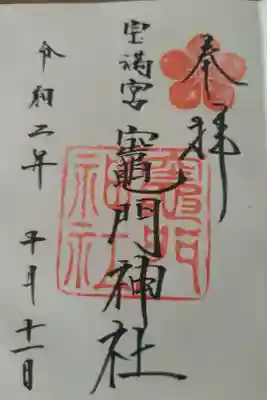 奉拝
宝満宮
竈門神社
令和二年
十月十一日
竈門神社